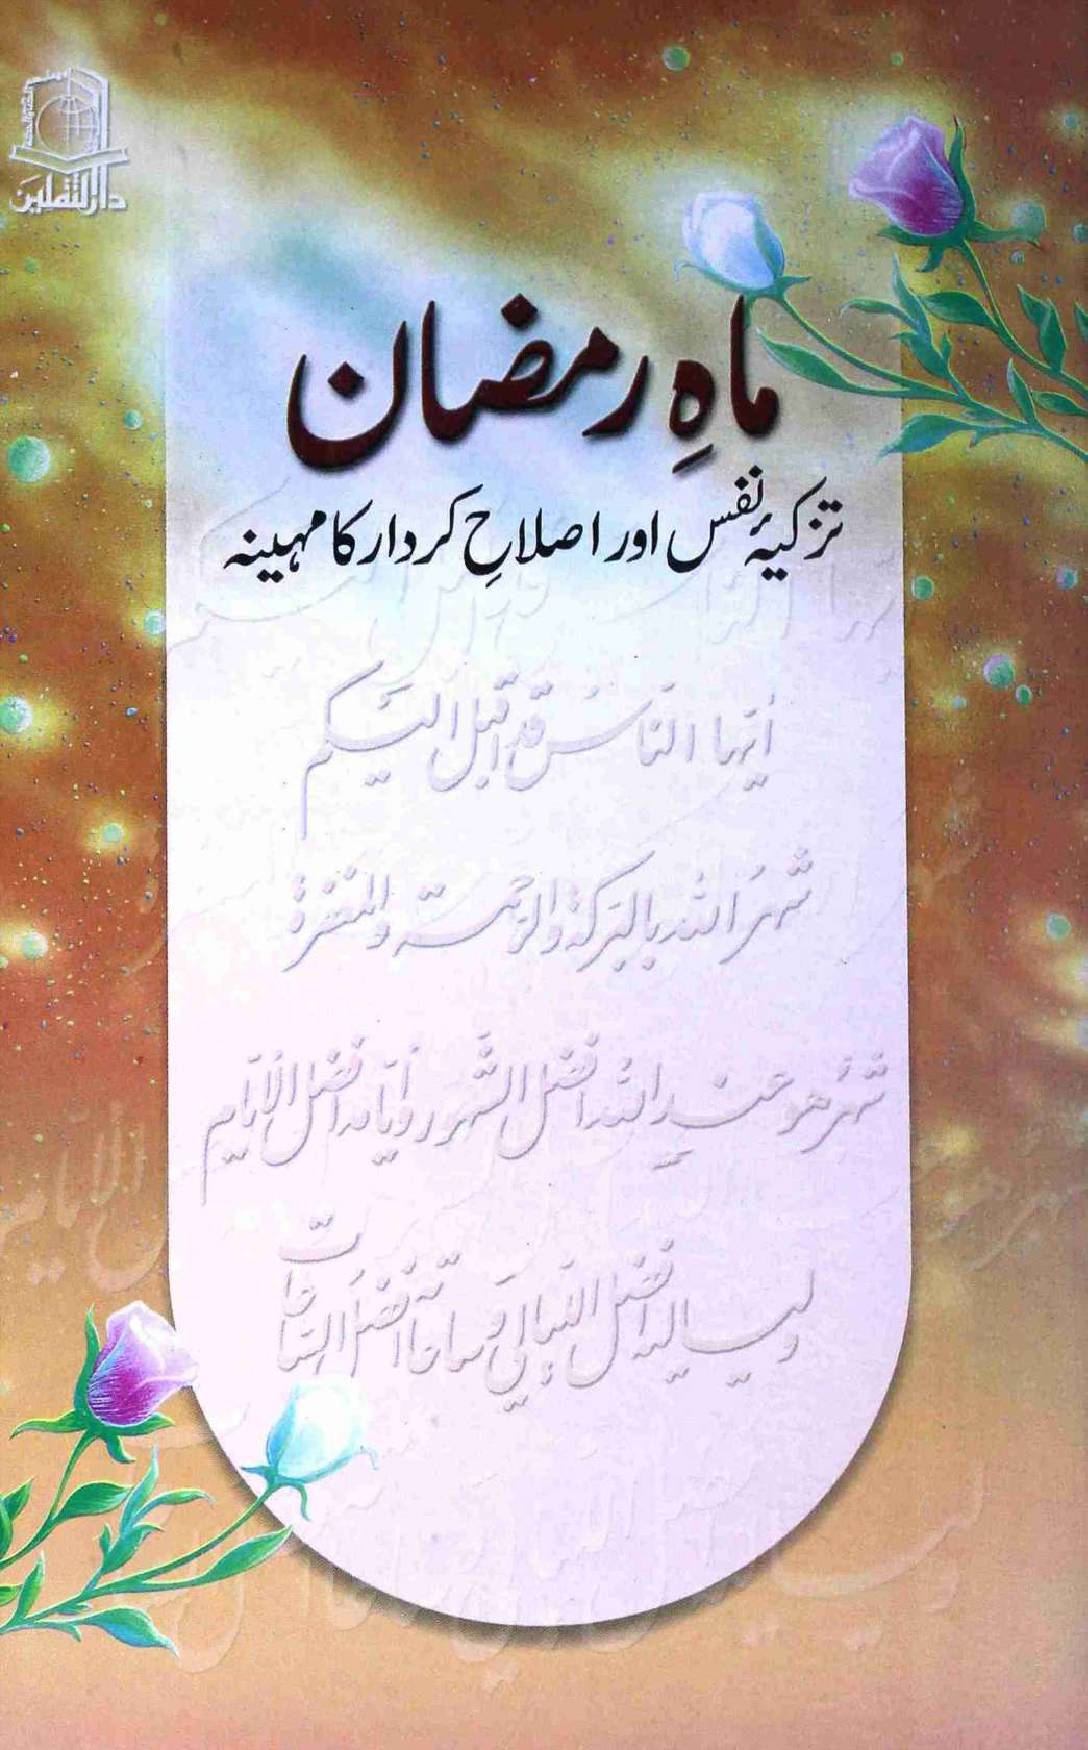 دارالثقلین
ماہِ رمضان
تزکیۂ نفس اور اصلاحِ کردار کا مہینہ
ایّها الناس قد اقبل الیکم
شهر الله بالبرکة والرحمة والمغفرة
شهر هو عند الله افضل الشهور و ایامه افضل الایام
و لیالیه افضل اللیالی و ساعاته افضل الساعات